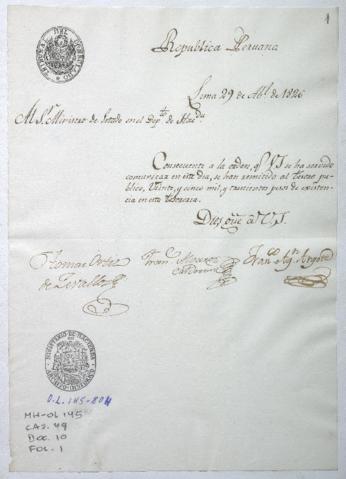 1
Republica Peruana
Lima 29 de Abl. de 1826
Al Sr. Ministro de Estado en el Depto. de Hacda.
Consecuente a la orden, q. VS se ha servido
comunicar en este dia, se han remitido al Tesoro pu-
blico, Veinte, y cinco mil, y pesos de existen-
cia en esta Tesoreria.
Dios gue. a V.S.
Tomas Ortiz
de Zevallos
Franco. Alvarez
Calderon
Juan
MINISTERIO DE HACIENDA
ARCHIVO HISTORICO
O.L. 145-804
MH-OL 145
CAJ. 49
DOC. 10
FOL. 1